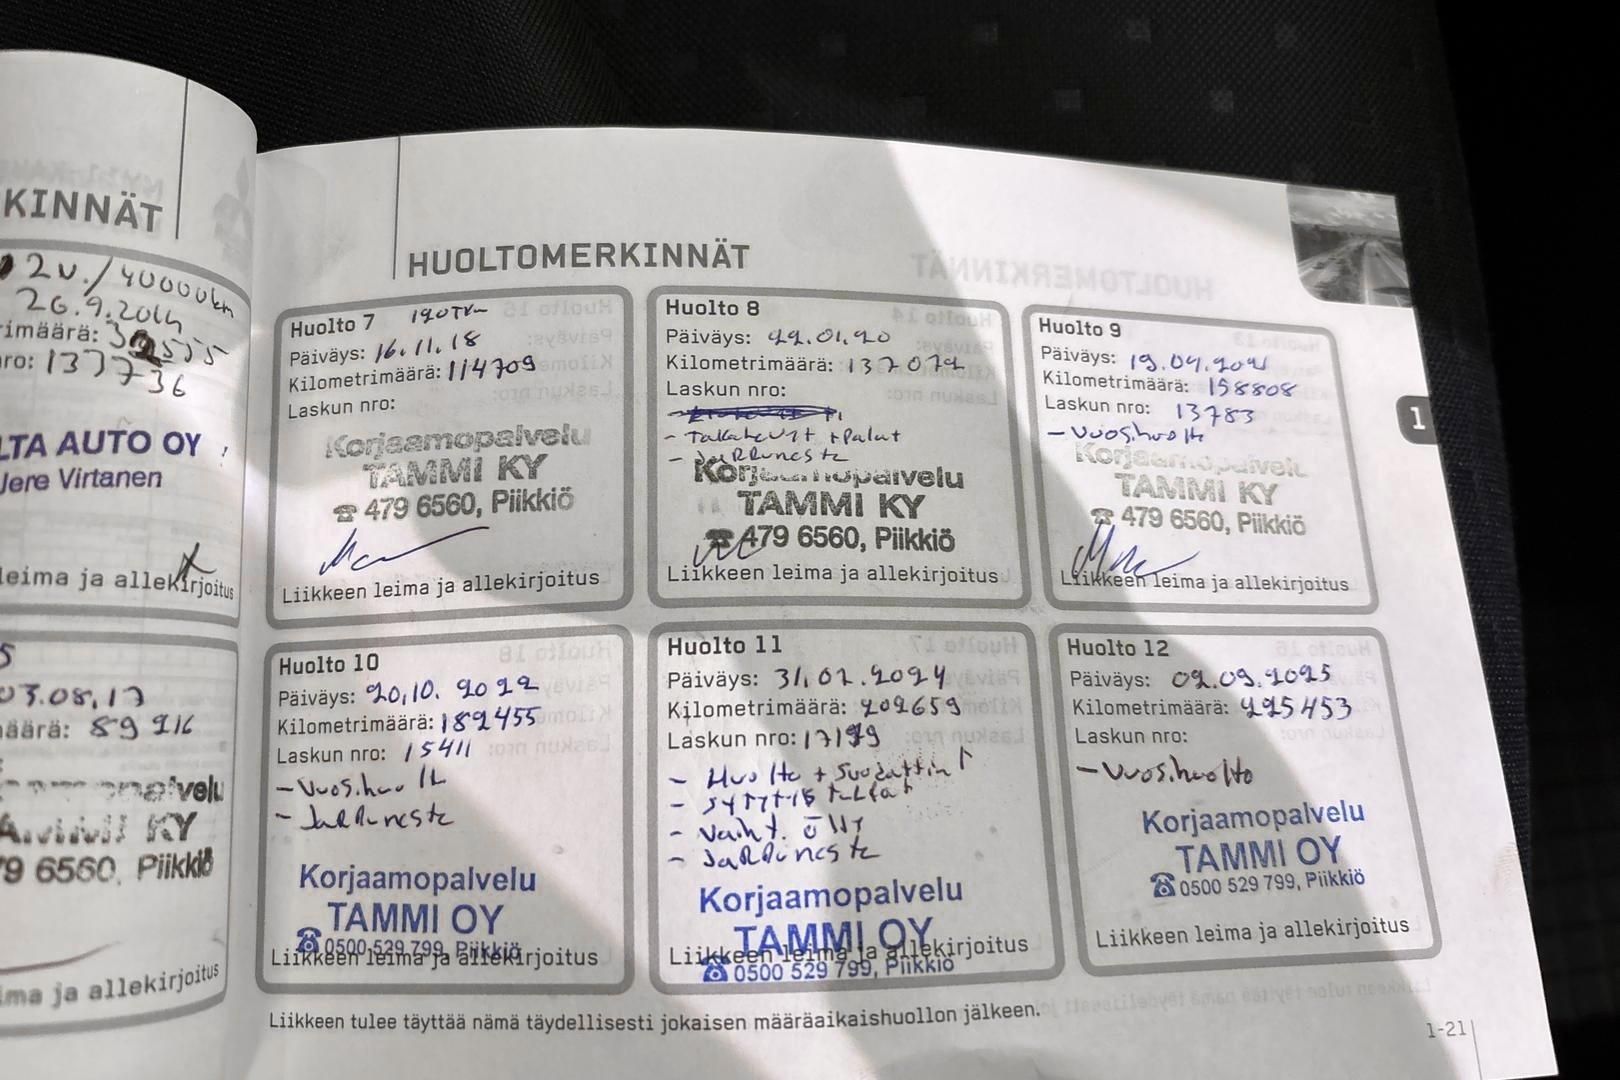 KINNÄT
2v./40000km
26.9.2014
rimäärä:
ro: 137736
LTA AUTO OY
Jere Virtanen
leima ja allekirjoitus
5
03.08,17
määrä: 89216
palvelu
TAMMI KY
79 6560, Piikkiö
ima ja allekirjoitus
HUOLTOMERKINNÄT
Huolto 7 120TKm
Päiväys: 16.11.18
Kilometrimäärä: 114709
Laskun nro:
Korjaamopalvelu
TAMMI KY
☎ 479 6560, Piikkiö
Liikkeen leima ja allekirjoitus
Huolto 8
Päiväys: 22.01.20
Kilometrimäärä: 137072
Laskun nro:
- Takalevyt + palat
- Jarruneste
Korjaamopalvelu
TAMMI KY
☎ 479 6560, Piikkiö
Liikkeen leima ja allekirjoitus
Huolto 9
Päiväys: 19.04.2021
Kilometrimäärä: 158808
Laskun nro: 13783
- Vuosihuolto
Korjaamopalvelu
TAMMI KY
☎ 479 6560, Piikkiö
Liikkeen leima ja allekirjoitus
Huolto 10
Päiväys: 20,10. 2022
Kilometrimäärä: 182455
Laskun nro: 15411
- Vuosihuolto
- Jarruneste
Korjaamopalvelu
TAMMI OY
☎ 0500 529 799, Piikkiö
Liikkeen leima ja allekirjoitus
Huolto 11
Päiväys: 31.07.2024
Kilometrimäärä: 202659
Laskun nro: 17199
- Huolto + Suodattimet
- Sytytystulpat
- Vaiht. öljy
- Jarruneste
Korjaamopalvelu
TAMMI OY
Liikkeen leima ja allekirjoitus
☎ 0500 529 799, Piikkiö
Huolto 12
Päiväys: 02.09.2025
Kilometrimäärä: 225453
Laskun nro:
- Vuosihuolto
Korjaamopalvelu
TAMMI OY
☎ 0500 529 799, Piikkiö
Liikkeen leima ja allekirjoitus
Liikkeen tulee täyttää nämä täydellisesti jokaisen määräaikaishuollon jälkeen.
1
1-21